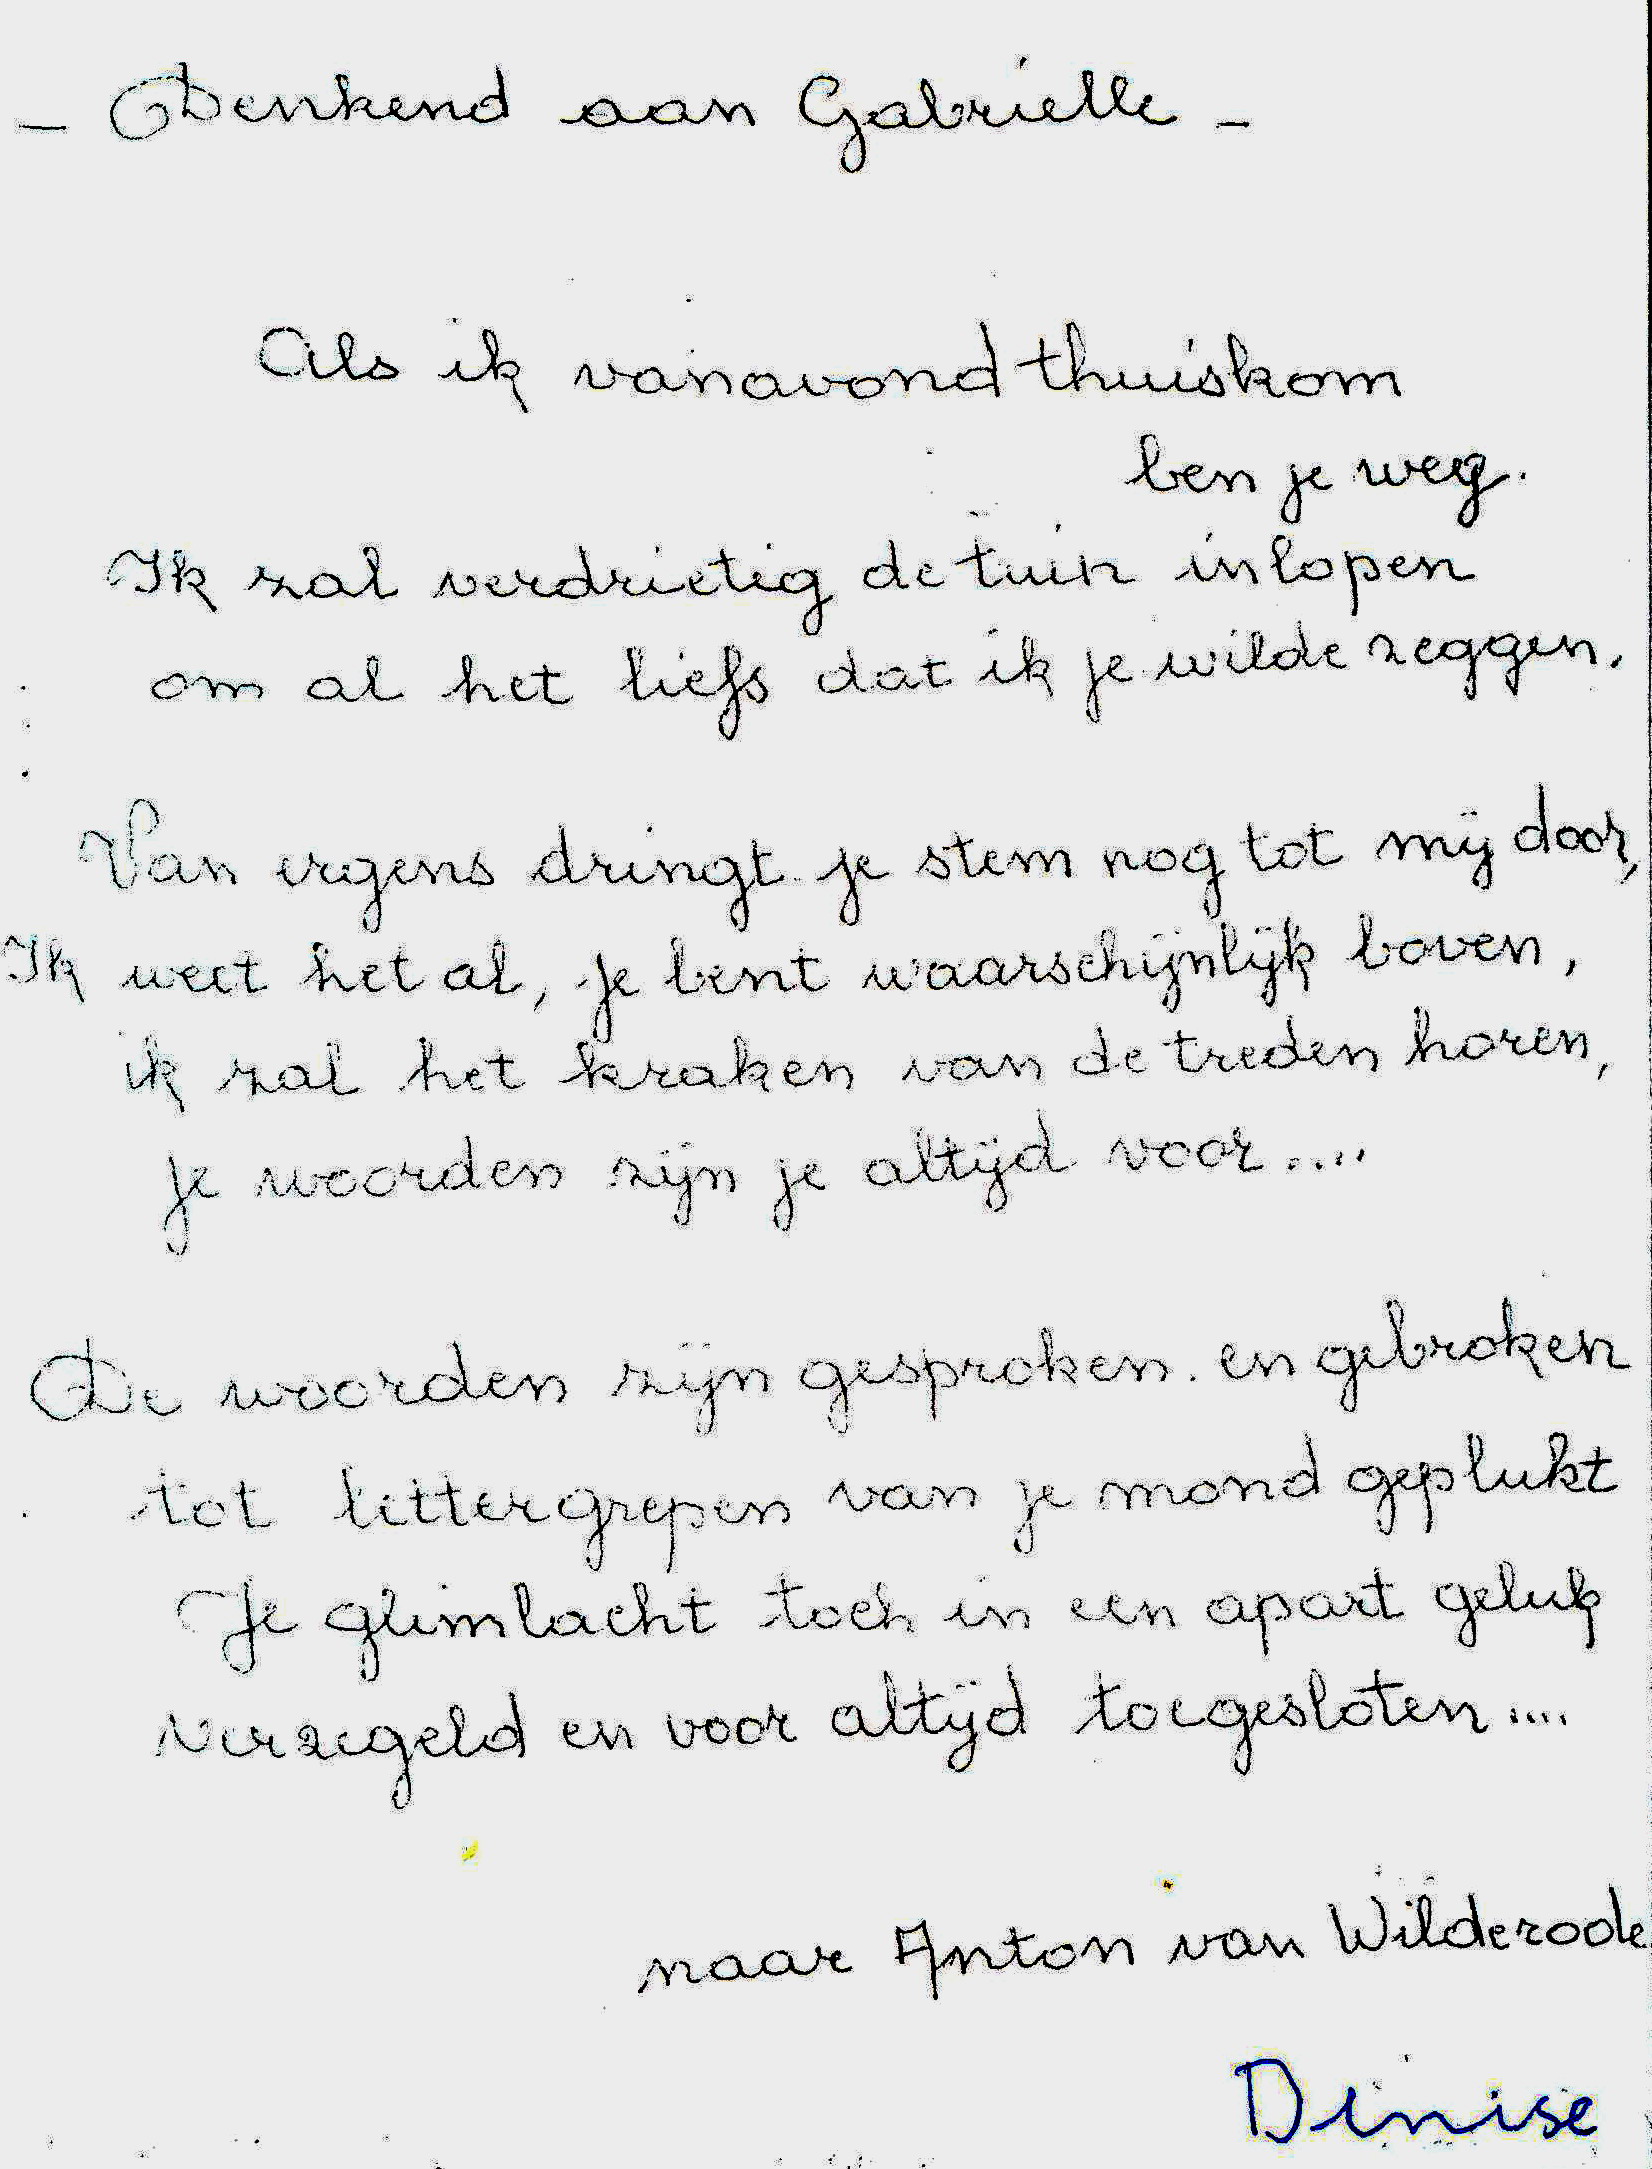 - Denkend aan Gabriëlle -
Als ik vanavond thuiskom
ben je weg.
Ik zal verdrietig de tuin inlopen
om al het liefs dat ik je wilde zeggen.
Van ergens dringt je stem nog tot mij door,
Ik weet het al, je bent waarschijnlijk boven,
ik zal het kraken van de treden horen,
je woorden zijn je altijd voor....
De woorden zijn gesproken en gebroken
tot lettergrepen van je mond geplukt
Je glimlacht toch in een apart geluk
verzegeld en voor altijd toegesloten....
naar Anton van Wilderode
Denise